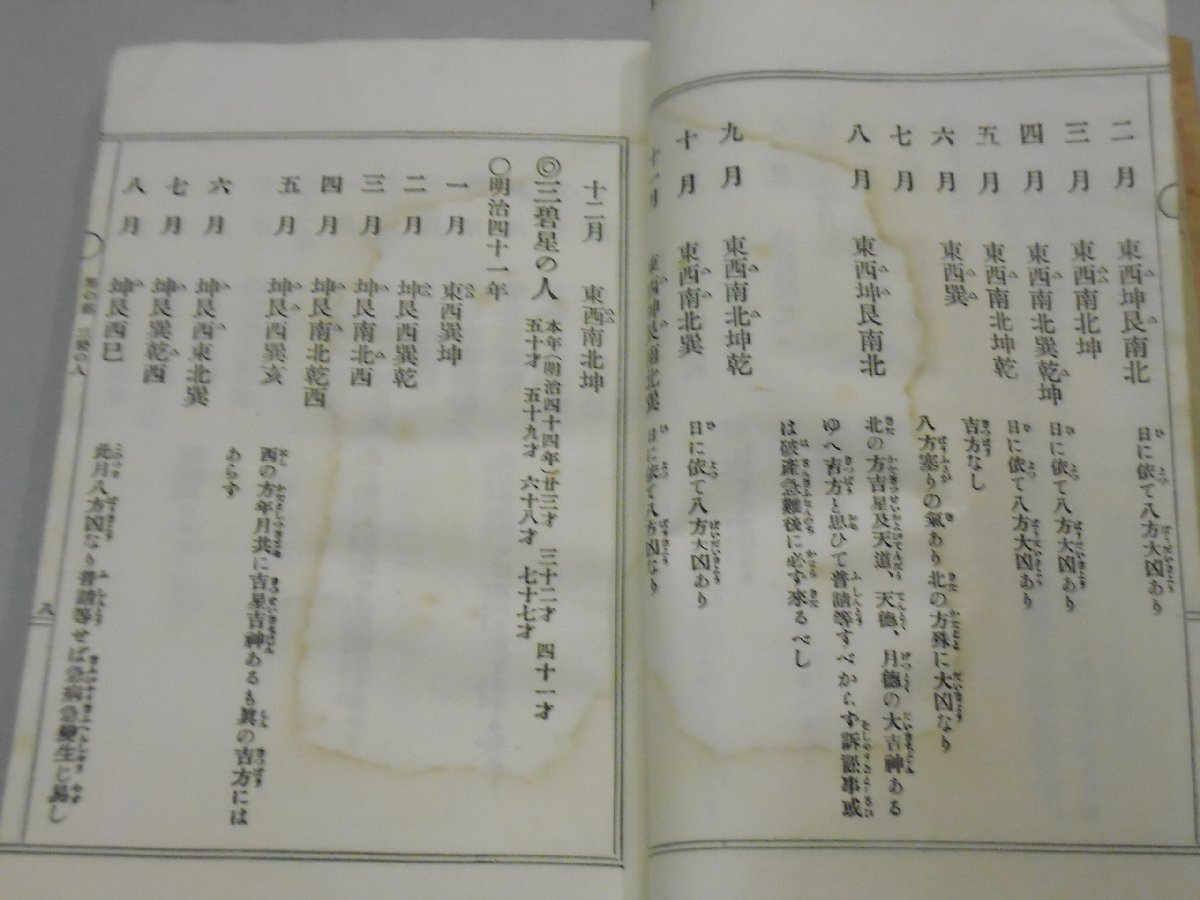 二月 東西坤艮南北 日に依て八方大凶あり
三月 東西南北坤
四月 東西南北巽乾坤 日に依て八方大凶あり
五月 東西南北坤乾 日に依て八方大凶あり
吉方なし
六月 東西巽 八方塞りの氣あり北の方殊に大凶なり
七月
北の方吉星及天道、天德、月德の大吉神ある
八月 東西坤艮南北
ゆへ吉方と思ひて普請等すべからず訴訟事或
は破産急難後に必ず來るべし
九月 東西南北坤乾
十月 東西南北巽 日に依て八方大凶あり
十一月 東西坤艮南北巽 日に依て八方凶なり
十二月 東西南北坤
◎三碧星の人 本年(明治四十四年)廿三才 三十二才 四十一才
五十才 五十九才 六十八才 七十七才
○明治四十一年
一月 東西巽坤
二月 坤艮西巽乾
三月 坤艮南北西
四月 坤艮南北乾西
五月 坤艮西巽亥 西の方年月共に吉星吉神あるも眞の吉方には
あらず
六月 坤艮西東北巽
七月 坤艮巽乾酉
八月 坤艮西巳 此月八方凶なり普請等せば急病急變生じ易し
三碧の人
八